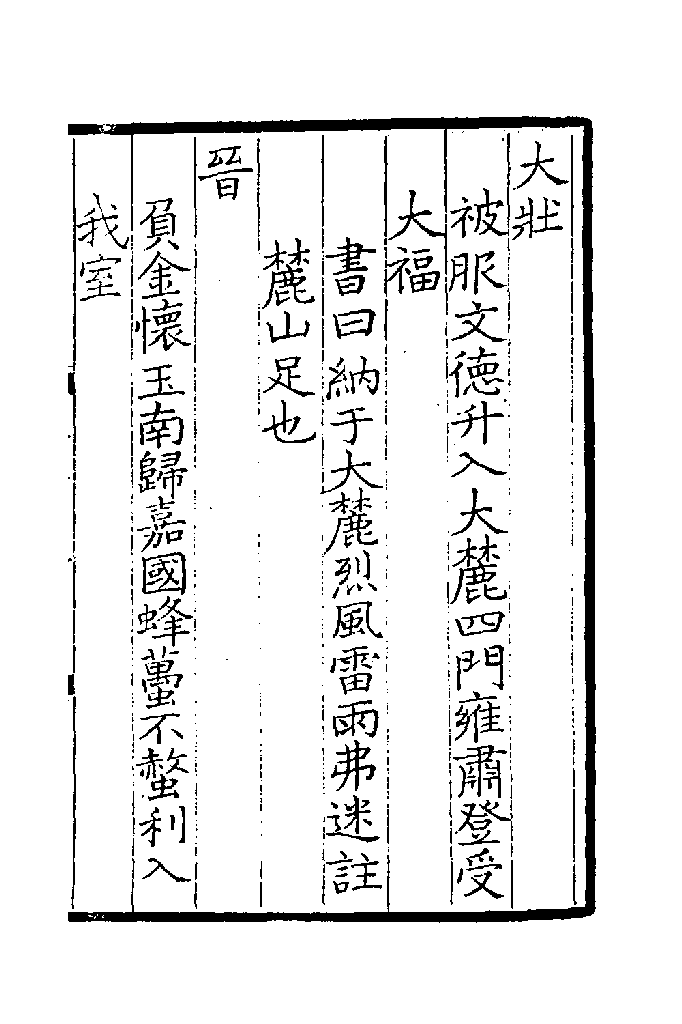 大壯
被服文徳升入大麓四門雍肅登受
大福
書曰納于大麓烈風雷雨弗迷註
麓山足也
晉
負金懷玉南歸嘉國蜂蠆不螫利入
我室